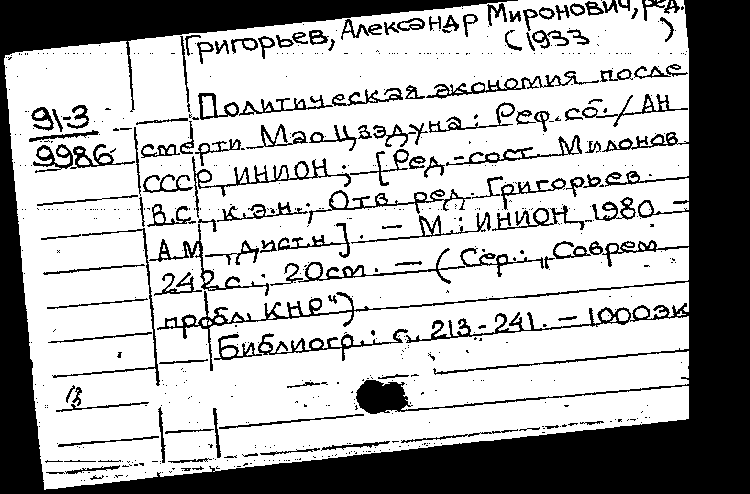 Григорьев, Александр Миронович, ред.
(1933 )
91-3
9986
Политическая экономия после
смерти Мао Цзэдуна: Реф. сб. / АН
СССР, ИНИОН; [Ред.-сост. Милонов
В.С., к.э.н.; Отв. ред. Григорьев.
А.М., дист.н]. - М.: ИНИОН, 1980. -
242 с.; 20 см. - (Сер.: „Соврем
пробл. КНР").
Библиогр.: с. 213-241. - 1000 эк